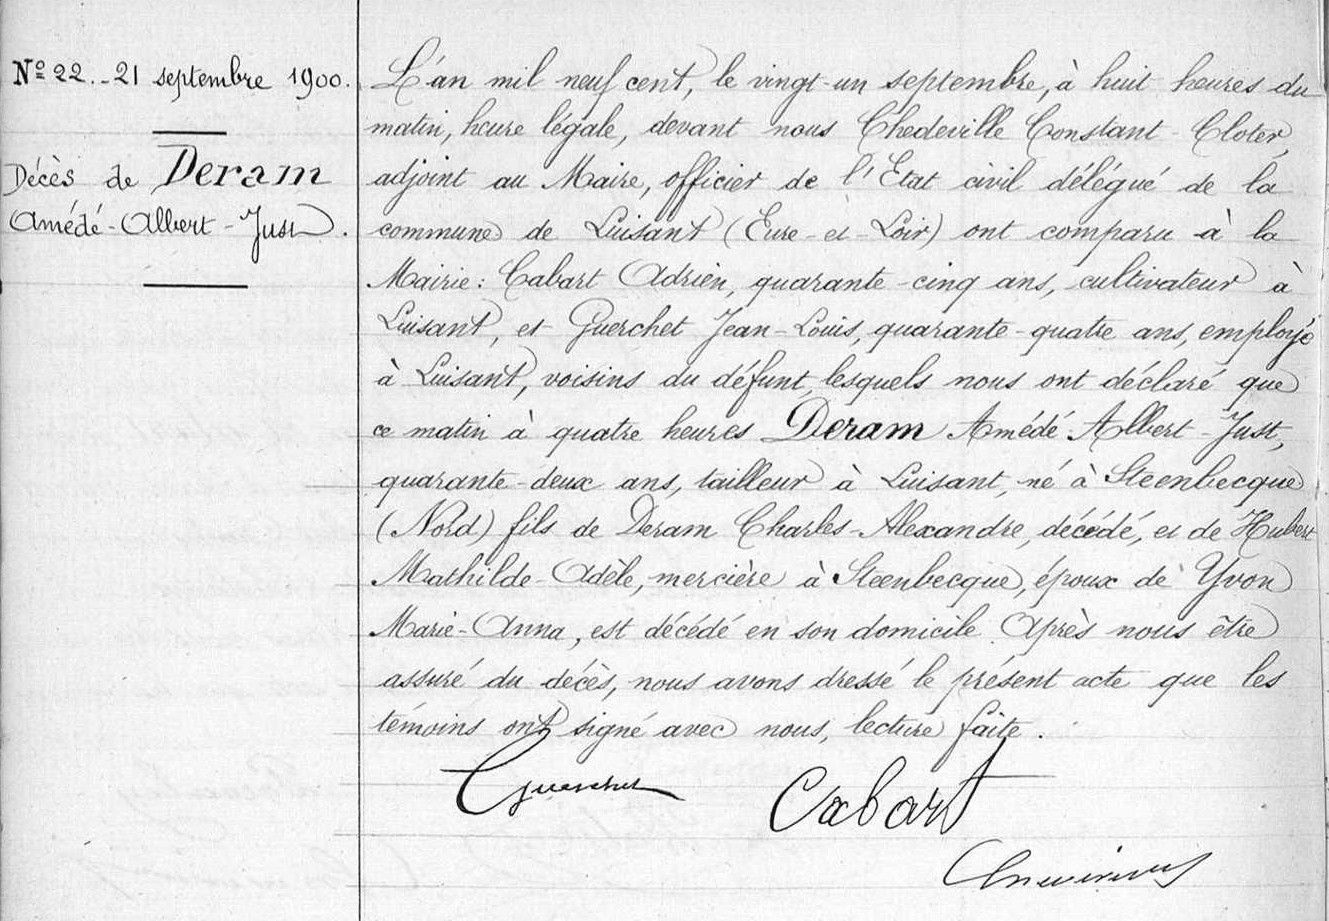 Nº 22. - 21 septembre 1900.
Décès de Deram
Amédé - Albert - Just.
L'an mil neuf cent, le vingt-un septembre, à huit heures du
matin, heure légale, devant nous Chedeville Constant - Cloter,
adjoint au Maire, officier de l'Etat civil délégué de la
commune de Luisant (Eure-et-Loir) ont comparu à la
Mairie: Cabart Adrien, quarante-cinq ans, cultivateur à
Luisant, et Guerchet Jean-Louis, quarante-quatre ans, employé
à Luisant, voisins du défunt, lesquels nous ont déclaré que
ce matin à quatre heures Deram Amédé-Albert-Just,
quarante-deux ans, tailleur à Luisant, né à Steenbecque
(Nord) fils de Deram Charles-Alexandre, décédé, et de Hubert
Mathilde-Adèle, mercière à Steenbecque, époux de Yvon
Marie-Anna, est décédé en son domicile. Après nous être
assuré du décès, nous avons dressé le présent acte que les
témoins ont signé avec nous, lecture faite.
Guerchet
Cabart